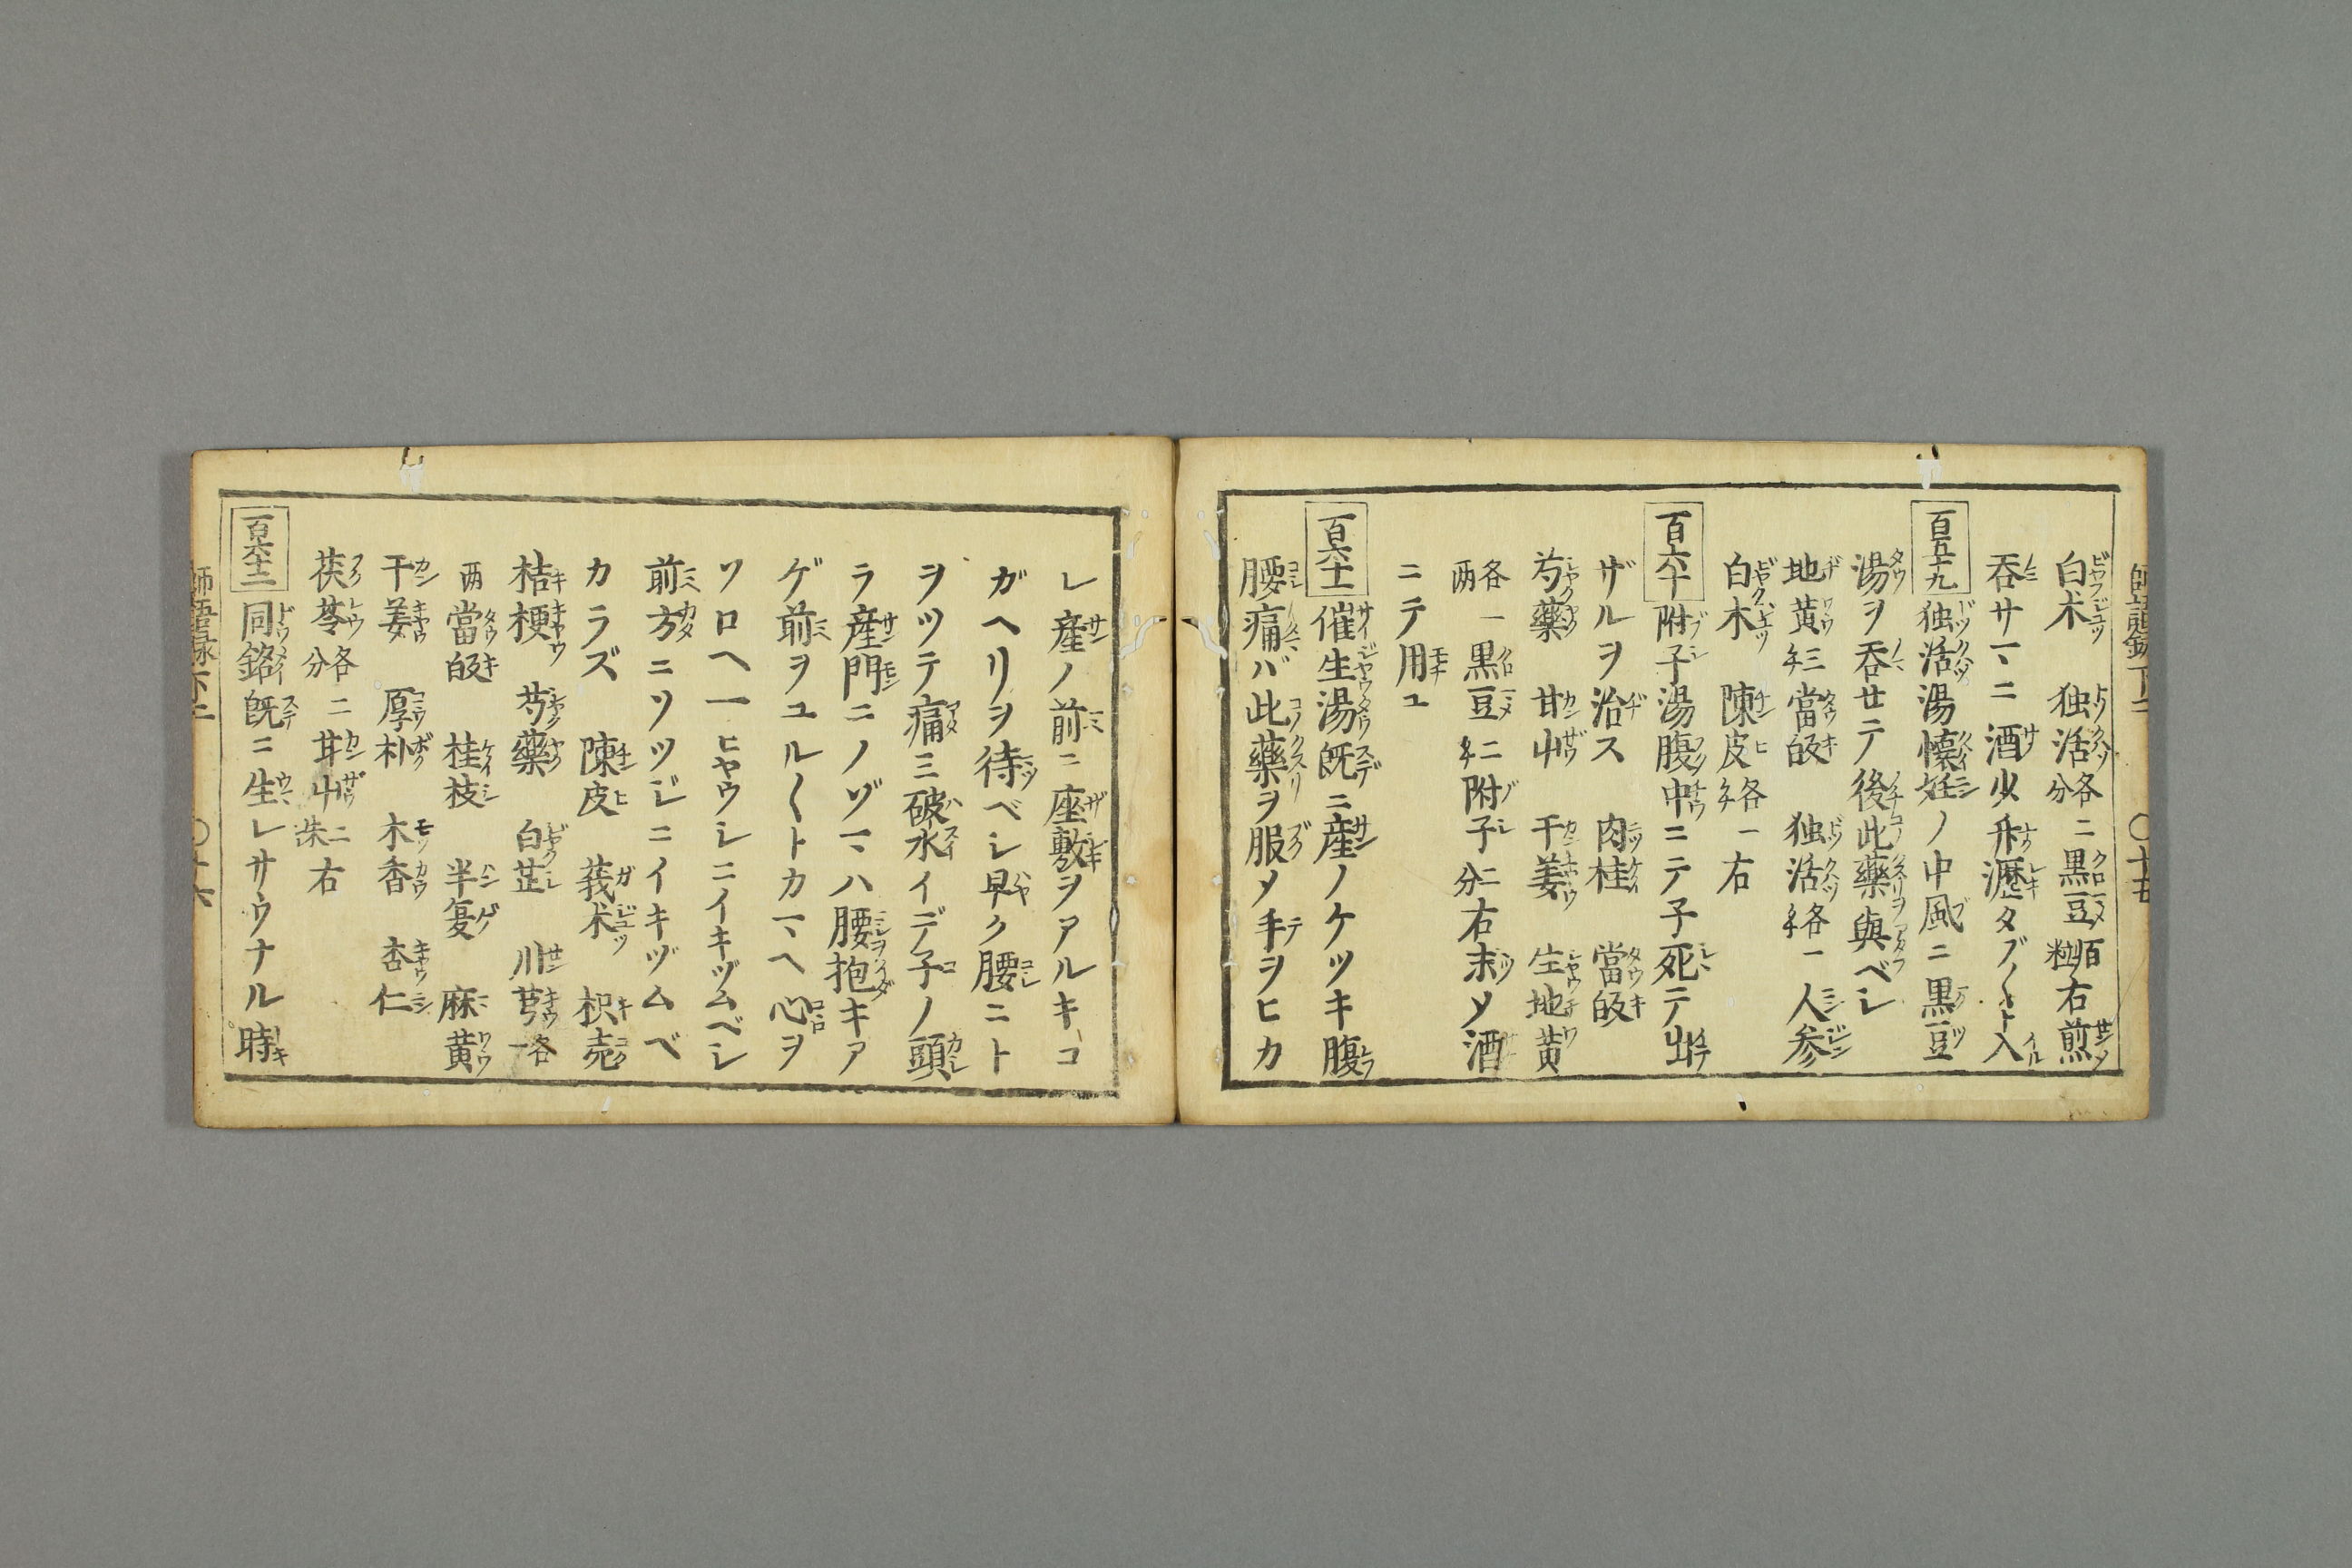 白术 独活各二分 黒豆百粒 右煎
呑サマニ酒少升瀝タブ〱ト入
百五九 独活湯 懐妊ノ中風ニ黒豆
湯ヲ呑せテ後此藥與ベシ
地黄三匁 當皈 独活各一匁 人参
白术 陳皮各一匁 右
百六十 附子湯 腹中ニテ子死テ出
ザルヲ治ス 肉桂 當皈
芍藥 甘艸 干姜 生地黄
各一両 黒豆二匁 附子二分 右末メ酒
ニテ用ユ
百六十一 催生湯 既ニ産ノケツキ腹
腰痛バ此藥ヲ服メ手ヲヒカ
レ産ノ前ニ座敷ヲアルキコ
ガヘリヲ待ベシ早ク腰ニト
ヲツテ痛ミ破水イデ子ノ頭
ラ産門ニノゾマハ腰抱キア
ゲ前ヲユル〱トカマヘ心ヲ
ソロヘ一ヒヤウシニイキヅムベシ
前方ニソツジニイキヅムベ
カラズ 陳皮 莪朮 枳売
桔梗 芍藥 白芷 川芎各一
両 當皈 桂枝 半夏 麻黄
干姜 厚朴 木香 杏仁
茯苓各二分 甘艸二朱 右
百六十二 同銘 既ニ生レサウナル時
師語録下二 〇十五
師語録下二 〇十六